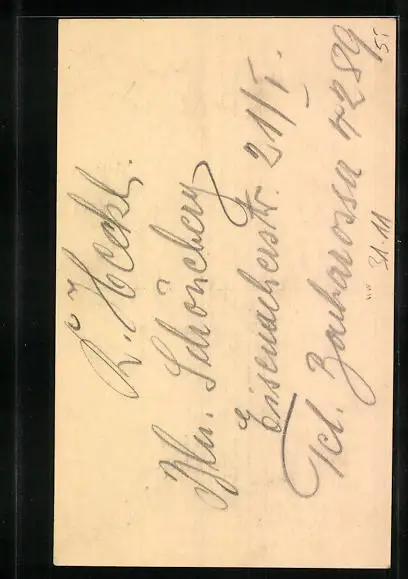 K. Heckl.
Bln. Schöneberg
Eisenacherstr. 21/I.
Tel. Barbarossa 4289
31.11
51